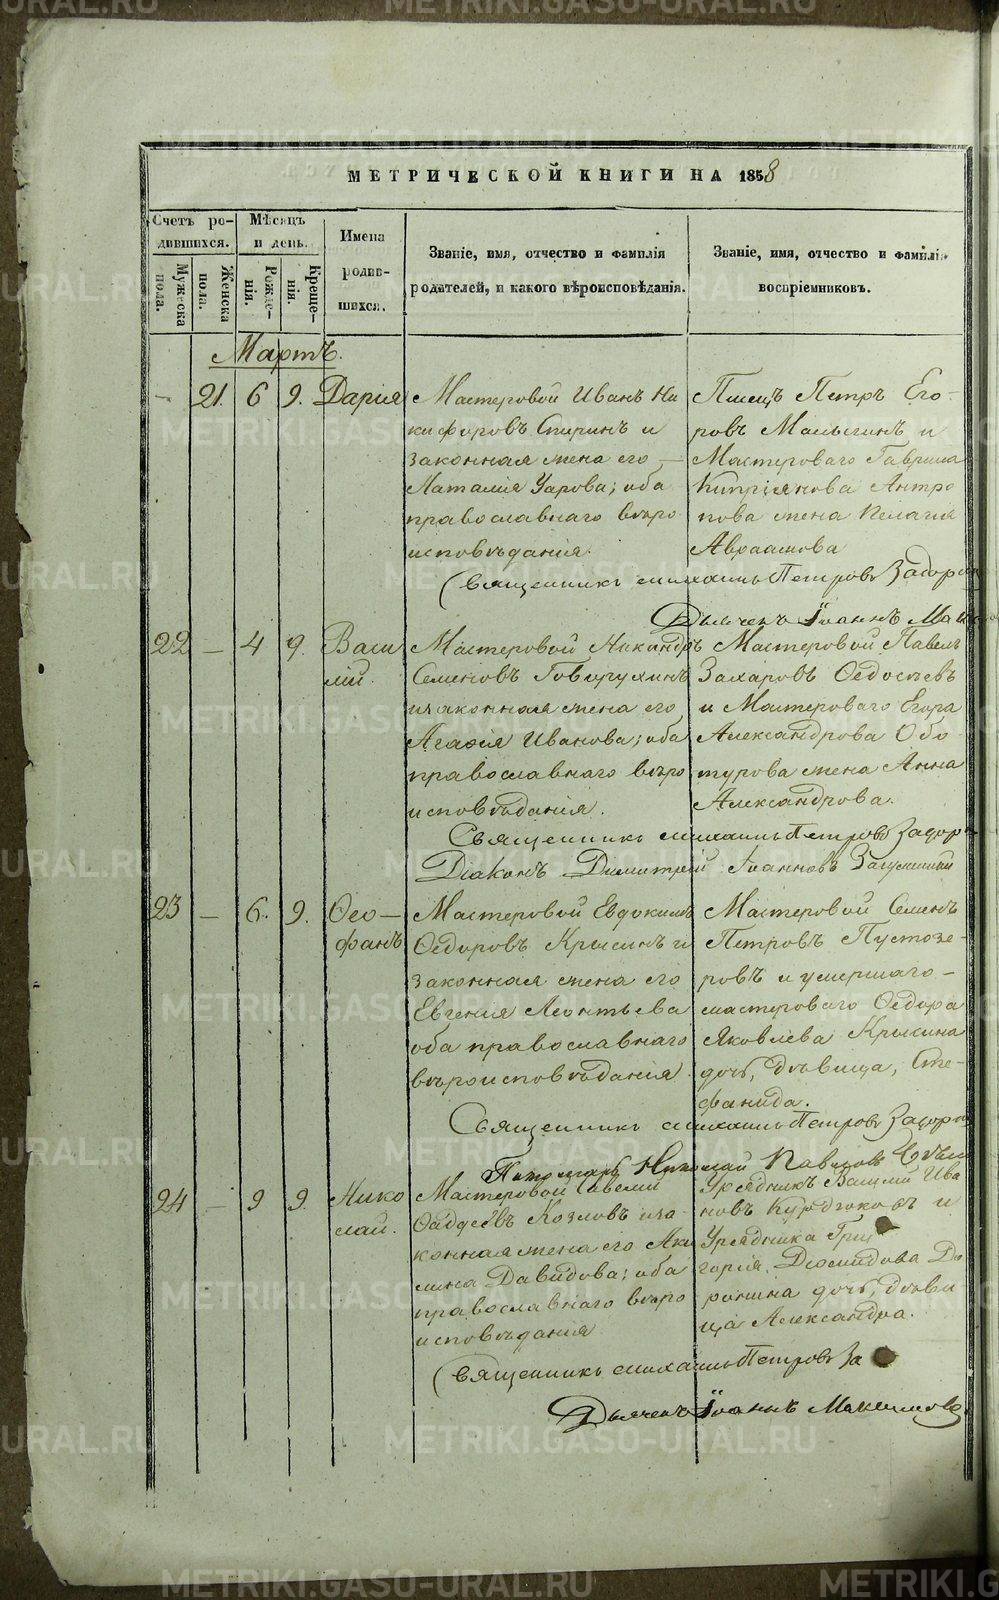 МЕТРИЧЕСКОЙ КНИГИ НА 1858
Счетъ ро-
дившихся.
Мужеска
пола.
Женска
пола.
Мѣсяцъ
и день.
Рожде-
нія.
Креще-
нія.
Имена
родив-
шихся.
Званіе, имя, отчество и фамилія
родителей, и какого вѣроисповѣданія.
Званіе, имя, отчество и фамилія
воспріемниковъ.
Мартъ.
– 21. 6 9. Дарія
Мастеровой Иванъ Ни
кифоровъ Спиринъ и
законная жена его –
Наталія Уарова; оба
православнаго вѣро
исповѣданія.
Писецъ Петръ Его-
ровъ Малыгинъ и
Мастероваго Гаврила
Кипріянова Антро
пова жена Пелагія
Авраамова
Священникъ Михаилъ Петровъ
Дьячекъ Іоаннъ
22 – 4 9. Васи
лій.
Мастеровой Никандръ
Семеновъ Говорухинъ
и законная жена его
Агафія Иванова; оба
православнаго вѣро
исповѣданія.
Мастеровой Павелъ
Захаровъ Ѳедосѣевъ
и Мастероваго Егора
Александрова Обо
турова жена Анна
Александрова.
Священникъ Михаилъ Петровъ
Діаконъ Димитрій Іоанновъ
23 – 6. 9. Ѳео–
фанъ
Мастеровой Евдокимъ
Ѳедоровъ Крысинъ и
законная жена его
Евгенія Леонтьева
оба православнаго
вѣроисповѣданія.
Мастеровой Семенъ
Петровъ Пустозе-
ровъ и умершаго –
мастероваго Ѳедора
Яковлева Крысина
дочь, дѣвица, Сте-
фанида.
Священникъ Михаилъ Петровъ
Пономарь Николай Павловъ
24 – 9 9. Нико
лай.
Мастеровой Савелій
Ѳаддеевъ Козловъ и за
конная жена его Аки
лина Давидова; оба
православнаго вѣро
исповѣданія
Урядникъ Василій Ива
новъ Курдюковъ и
Урядника Гри
горія Діомидова До
ронина дочь, дѣви
ца Александра.
Священникъ Михаилъ Петровъ За
Дьячекъ Іоаннъ Максимовъ
METRIKI.GASO-URAL.RU